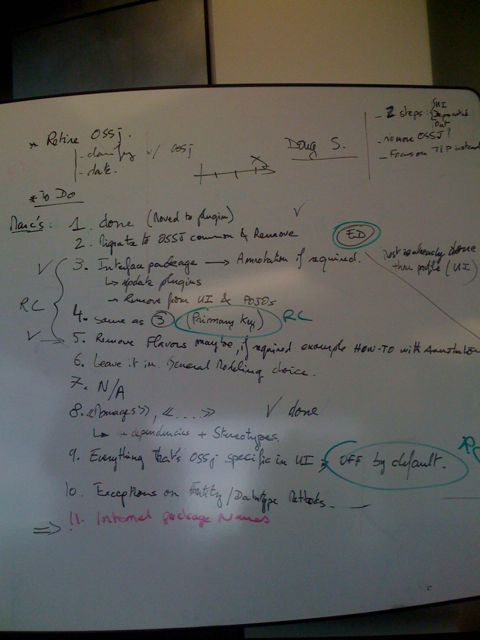 * Retire OSSj.
- clarify w/ OSSj
- date.
Doug S.
- 2 steps: UI
Deprecated
Out
- no more OSSJ?
- Focus on TIP instead
* To Do
Marc's: 1. done (Moved to plugin) √
2. Migrate to OSSJ common & Remove
ED
√ 3. Interface package → Annotation if required.
↳ update plugins
→ Remove from UI & POJOs
Just randomly done
thru profile (UI)
RC
4. same as ③ (Primary Key) RC
√ → 5. Remove Flavors maybe, if required example HOW-TO with Annotation
6. Leave it in General Modeling choice.
7. N/A
8. «Manages», «....» √ done
↳ + dependencies + Stereotypes.
9. Everything that's OSSj specific in UI → OFF by default. RC
10. Exceptions on Entity/Datatype Methods.
⇒ 11. Internal package Names